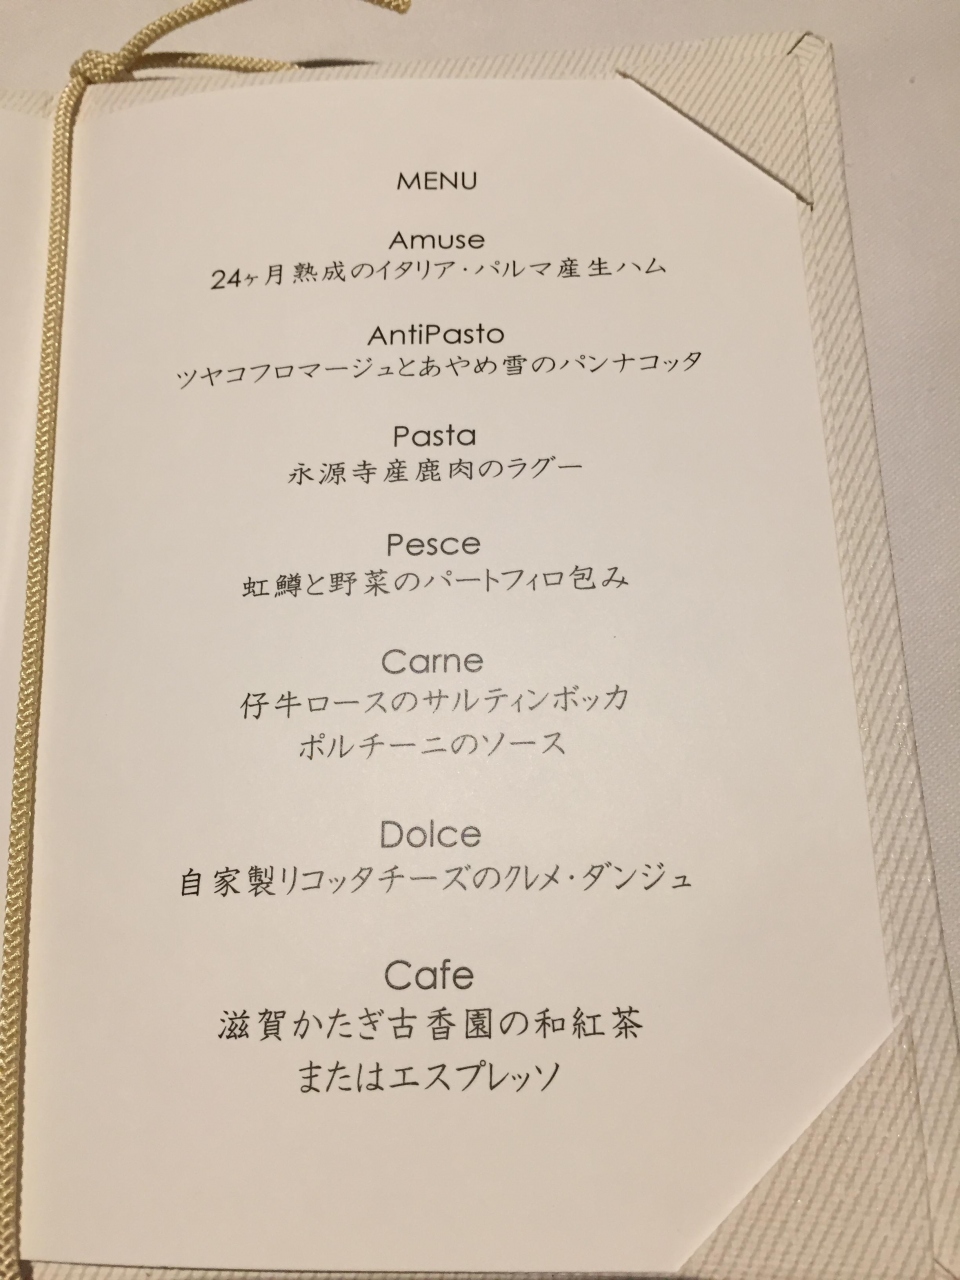 MENU
Amuse
24ヶ月熟成のイタリア・パルマ産生ハム
AntiPasto
ツヤコフロマージュとあやめ雪のパンナコッタ
Pasta
永源寺産鹿肉のラグー
Pesce
虹鱒と野菜のパートフィロ包み
Carne
仔牛ロースのサルティンボッカ
ポルチーニのソース
Dolce
自家製リコッタチーズのクレメ・ダンジュ
Cafe
滋賀かたぎ古香園の和紅茶
またはエスプレッソ